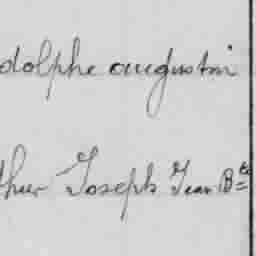 dolphe augustin
thur Joseph Jean Bte